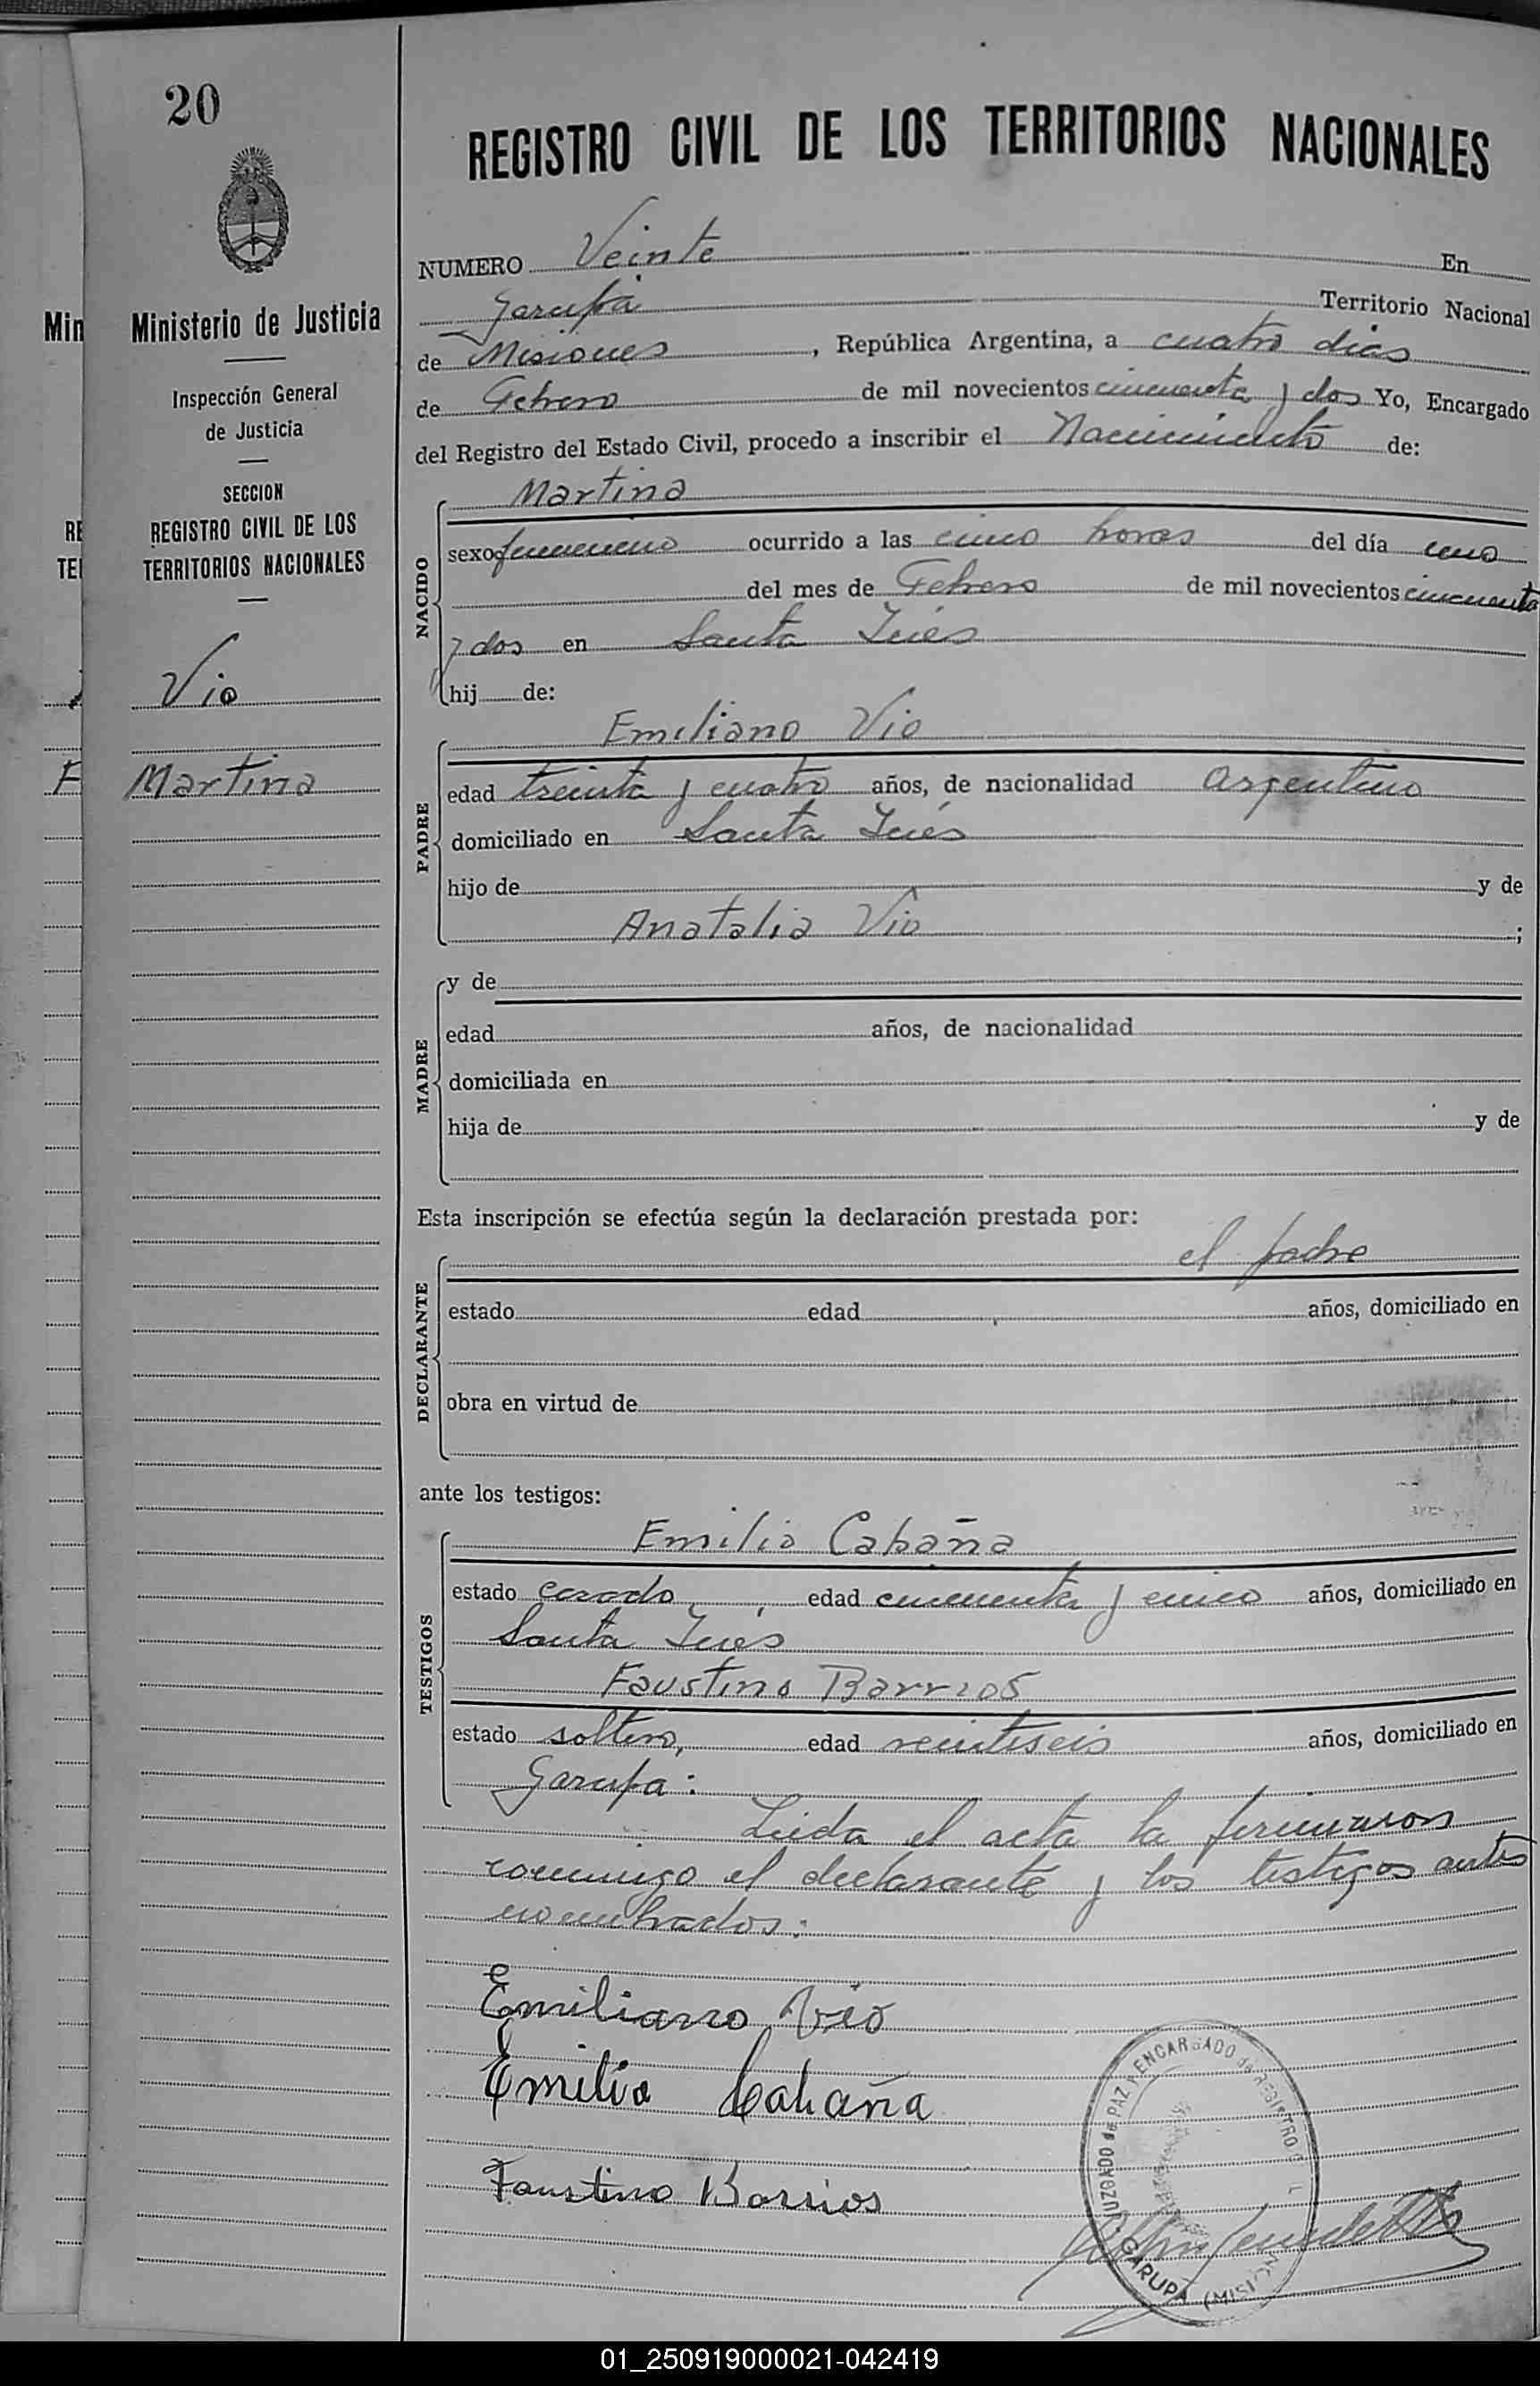 20
Ministerio de Justicia
Inspección General
de Justicia
SECCION
REGISTRO CIVIL DE LOS
TERRITORIOS NACIONALES
Vio
Martina
Min
RE
TE
REGISTRO CIVIL DE LOS TERRITORIOS NACIONALES
NUMERO Veinte En
Garupá Territorio Nacional
de Misiones, República Argentina, a cuatro dias
de Febrero de mil novecientos cincuenta y dos Yo, Encargado
del Registro del Estado Civil, procedo a inscribir el Nacimiento de:
NACIDO
Martina
sexo femenino ocurrido a las cinco horas del día uno
del mes de Febrero de mil novecientos cincuenta
y dos en Santa Inés
hij de:
PADRE
Emiliano Vio
edad treinta y cuatro años, de nacionalidad Argentino
domiciliado en Santa Inés
hijo de y de
Anatalia Vio ;
MADRE
y de
edad años, de nacionalidad
domiciliada en
hija de y de
Esta inscripción se efectúa según la declaración prestada por:
DECLARANTE
el padre
estado edad años, domiciliado en
obra en virtud de
ante los testigos:
TESTIGOS
Emilio Cabaña
estado casado, edad cincuenta y cinco años, domiciliado en
Santa Inés
Faustino Barrios
estado soltero, edad veintiseis años, domiciliado en
Garupa:
Leida el acta la firmaron
conmigo el declarante y los testigos antes
nombrados:
Emiliano Vio
Emilio Cabaña
Faustino Barrios
JUZGADO de PAZ ENCARGADO de REGISTRO
GARUPA (MISI
01_250919000021-042419